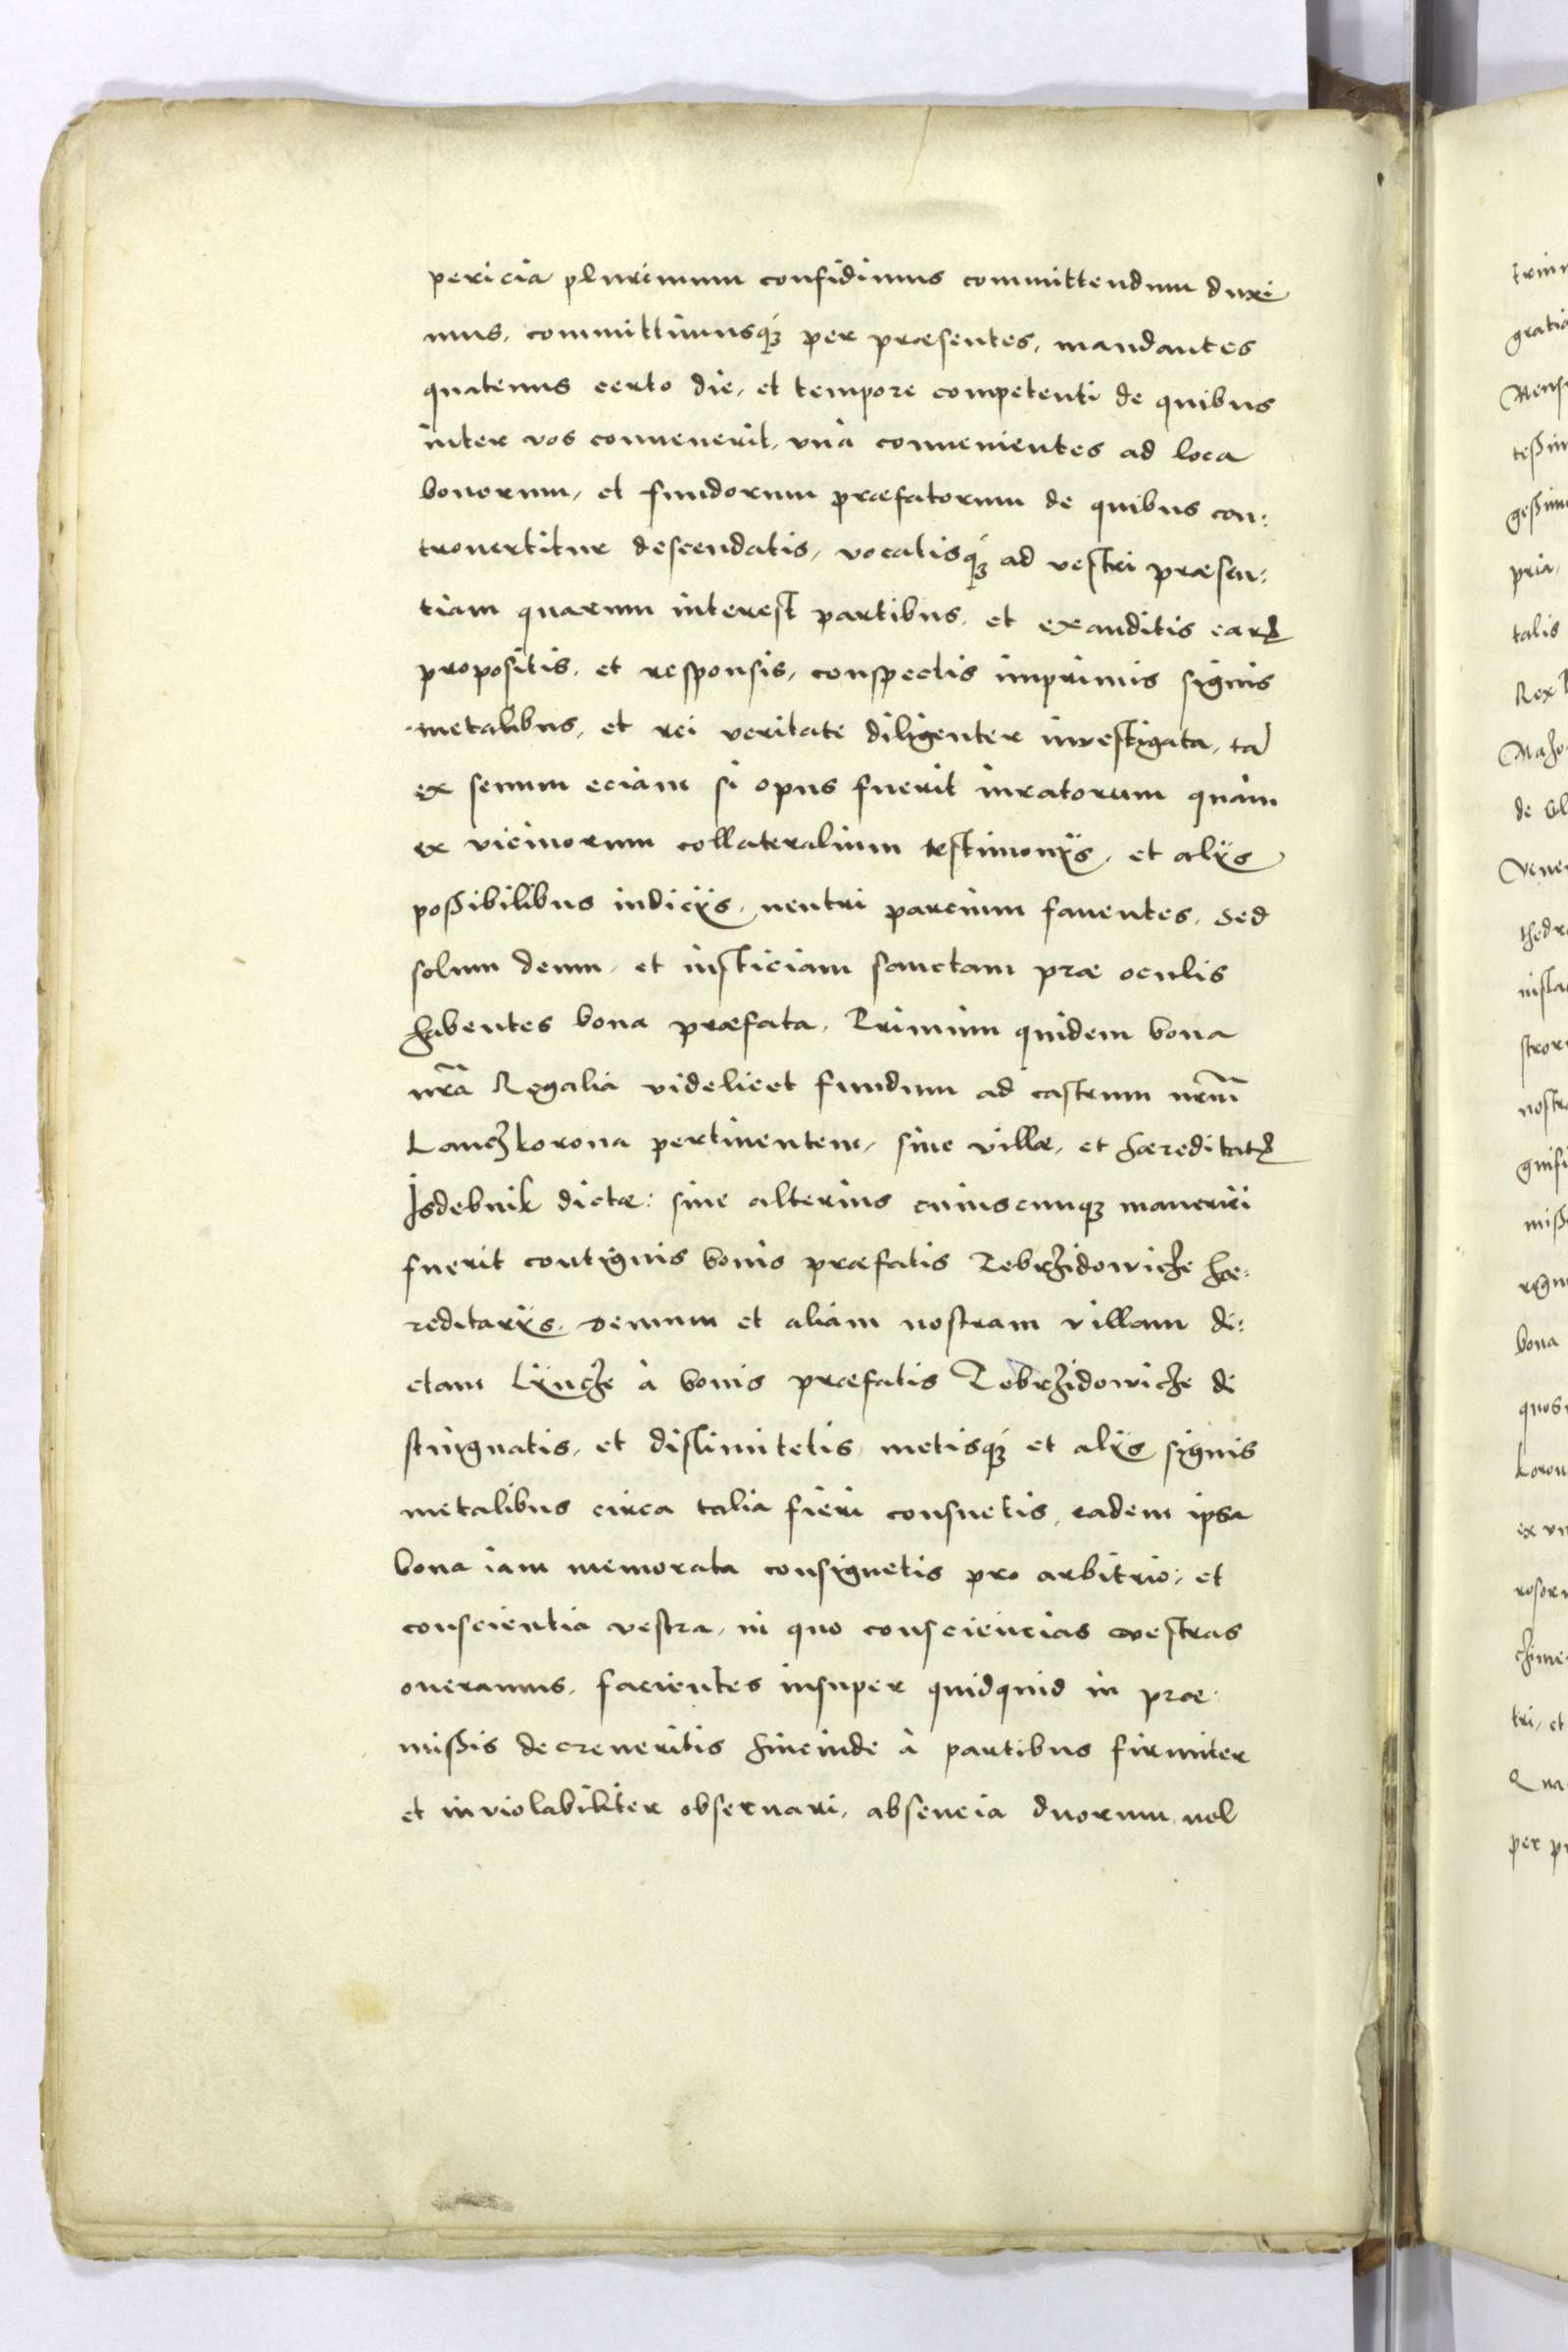 pericia plurimum confidimus committendum duxi
mus, committimusq́ꝫ per præsentes, mandantes
quatenus certo die, et tempore competenti de quibus
inter vos convenerit, vnà conuenientes ad loca
bonorum, et fundorum præfatorum de quibus con:
trouertitur descendatis, vocatisq́ꝫ ad vestri præsen:
tiam quarum interest partibus, et exauditis earꝝ
propositis, et responsis, conspectis imprimis signis
metalibus, et rei veritate diligenter investigata, tã
ex senum eciam si opus fuerit iuratorum quàm
ex vicinorum collateralium testimonÿs, et alÿs
possibilibus indicÿs, neutri parcium fauentes, sed
solum deum, et iusticiam sanctam præ oculis
habentes bona præfata, Primum quidem bona
nr̃a Regalia videlicet fundum ad castrum nr̃m
Lanczkorona pertinentem, siue villæ, et hæreditatꝝ
Isdebnik dictæ: siue alterius cuiuscunqꝫ maneriei
fuerit contiguis bonis præfatis Zebrzidowicze hæ:
reditarÿs, demum et aliam nostram villam di:
ctam Lÿncze à bonis præfatis Zebrzidowicze di
stinguatis, et dislimitetis metisq́ꝫ et alÿs signis
metalibus circa talia fieri consuetis, eadem ipsa
bona iam memorata consignetis pro arbitrio, et
conscientia vestra, in quo consciencias vestras
oneramus, facientes insuper quidquid in præ:
missis decreueritis hincinde à partibus firmiter
et inviolabiliter obseruari, absencia duorum uel